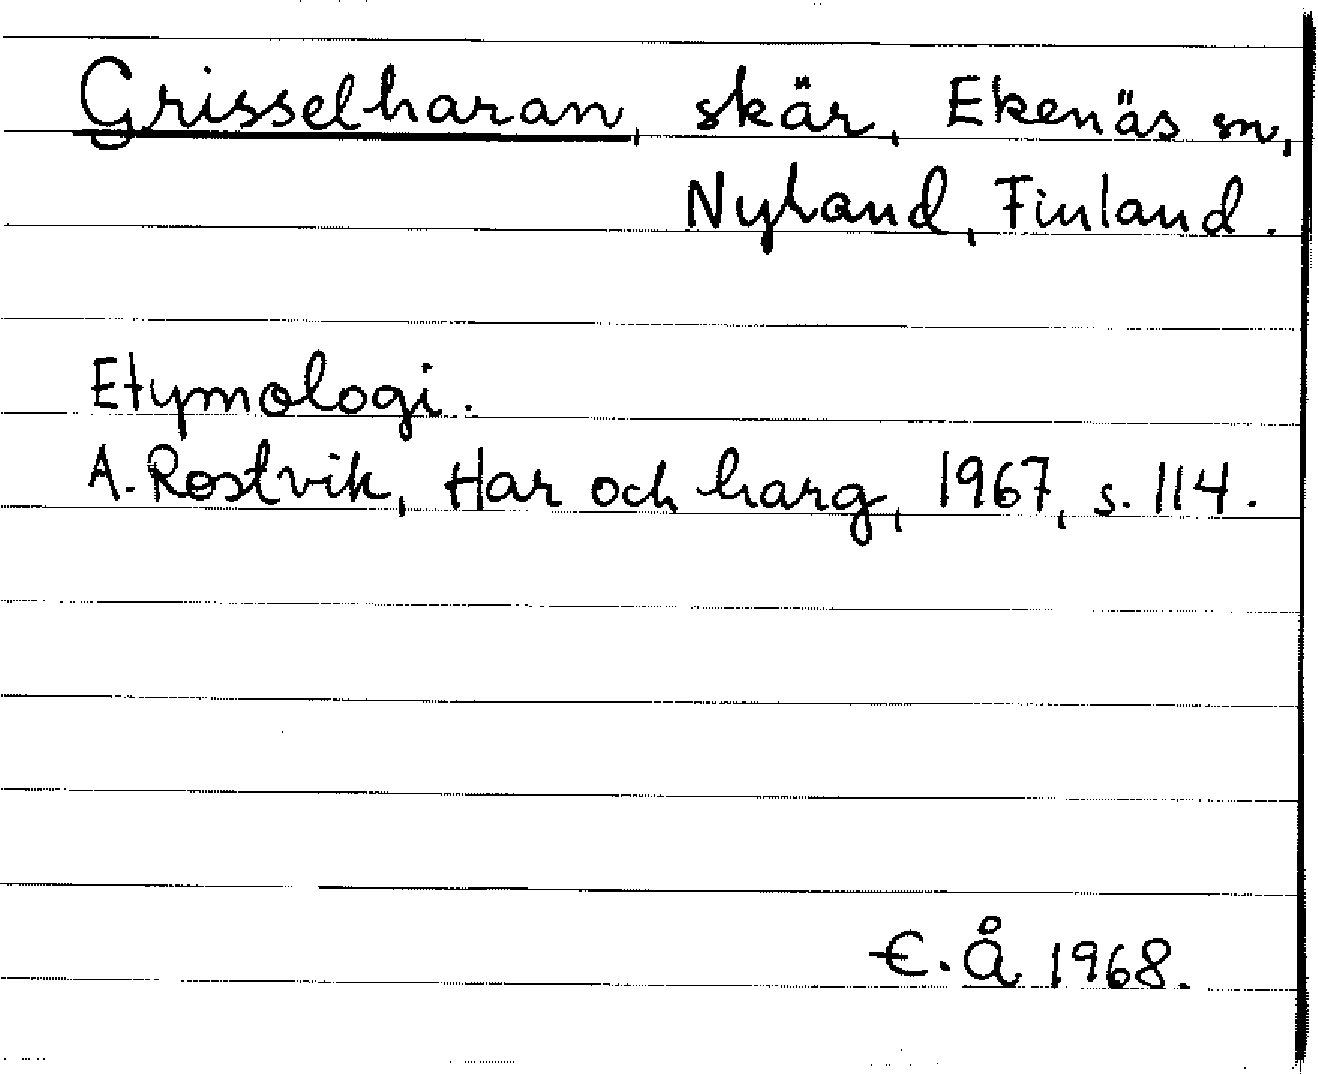 Grisselharan, skär, Ekenäs sn,
Nyland, Finland.
Etymologi.
A. Rostvik, Har och harg, 1967, s. 114.
E. Å 1968.